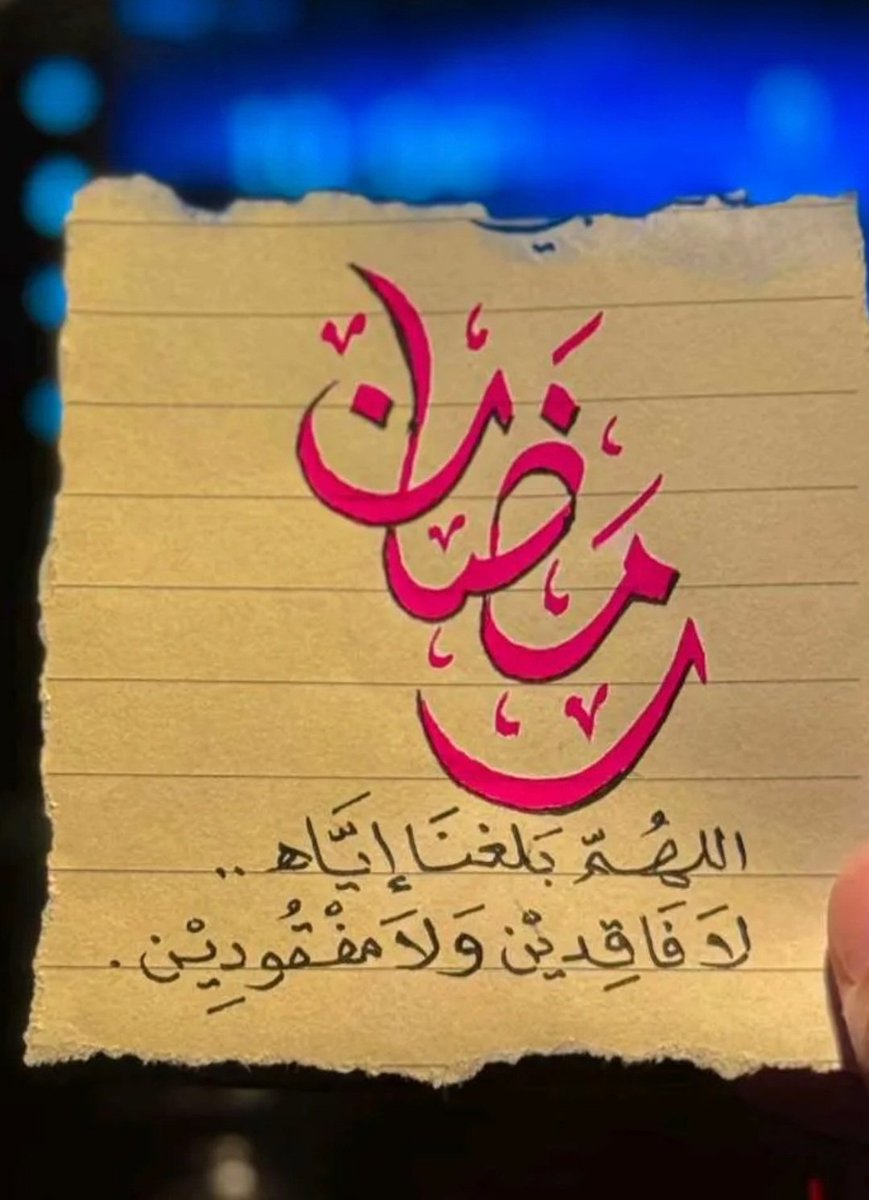 رمضان
اللهُمّ بَلغنَا إيَّاه ..
لَا فَاقِديْن وَلَا مفْقُودِيْن .